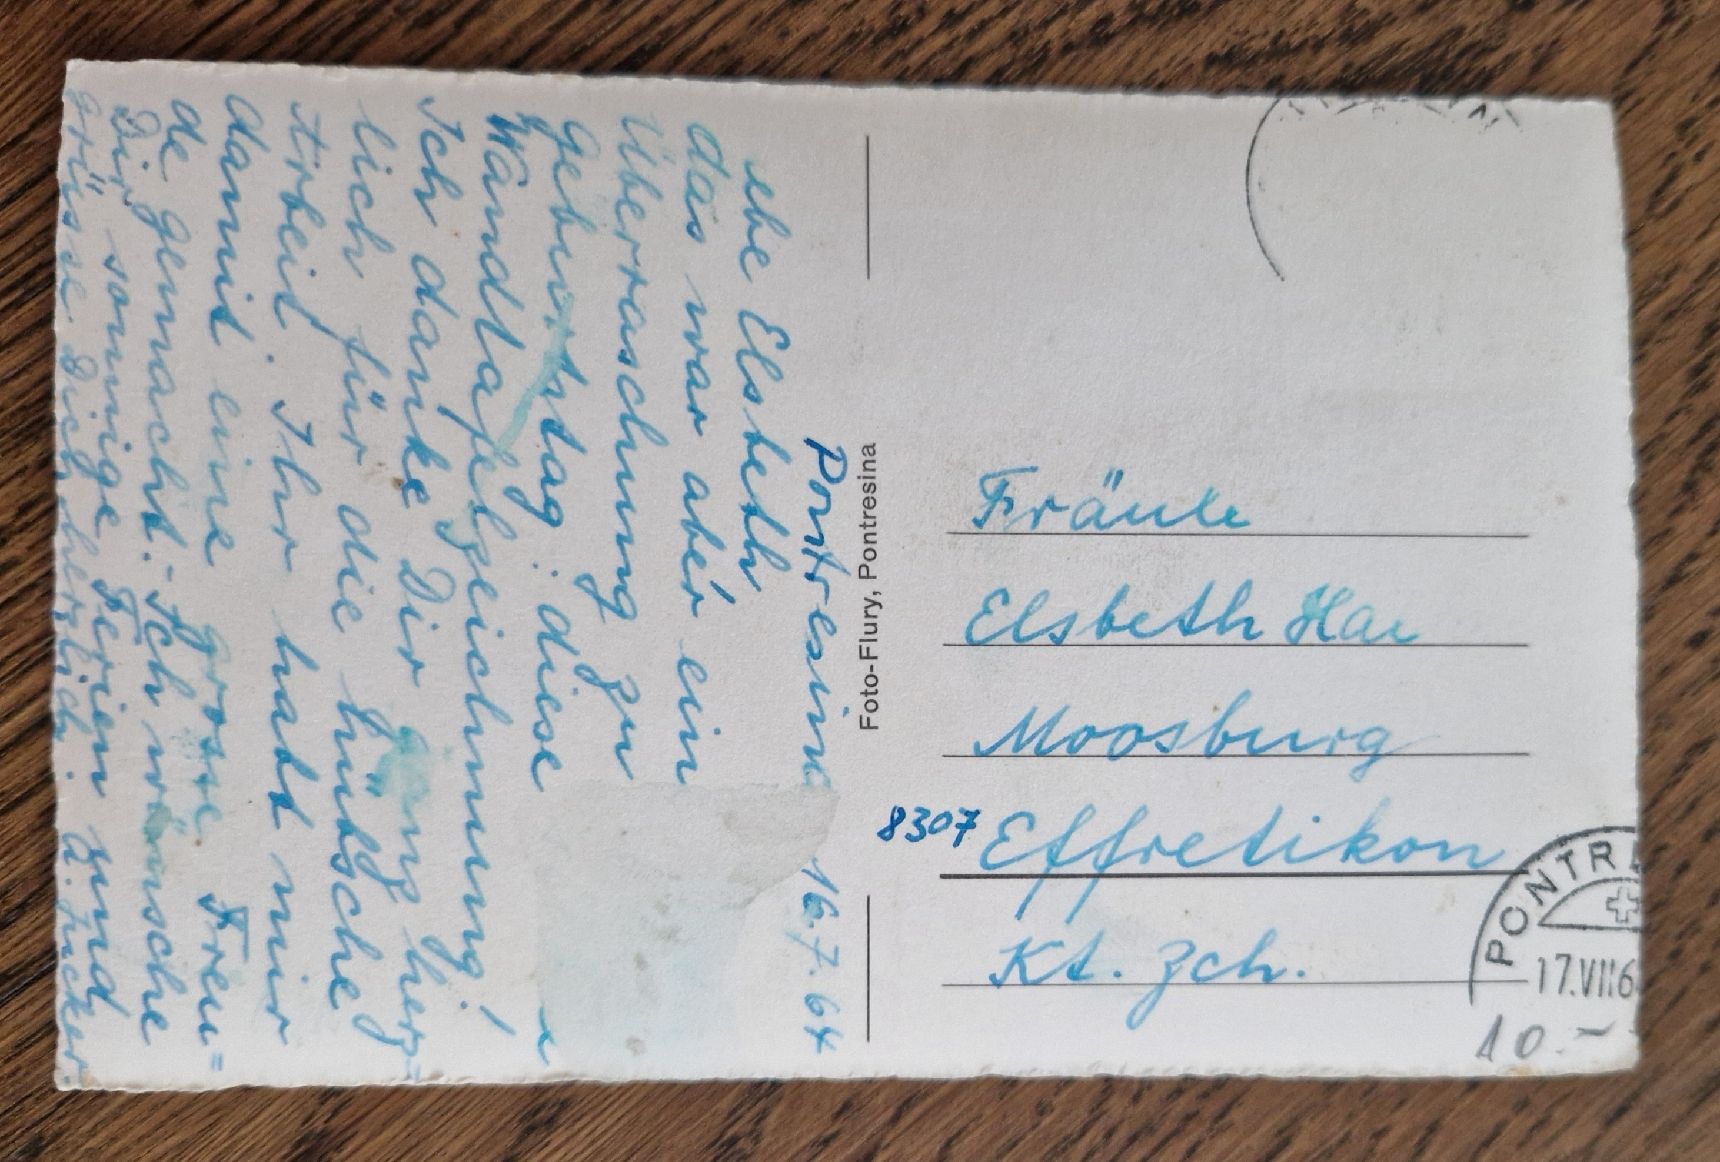 Pontresina 16.7.64
ebe Elsbeth
das war aber ein
Überraschung zu
Geburtstag: diese
Wandtafelzeichnung!
Ich danke Dir ganz herz=
lich für die hübsche
Arbeit. Ihr habt mir
damit eine grosse Freu=
de gemacht.- Ich wünsche
Dir sonnige Ferien und
grüsse Dich herzlich.
Foto-Flury, Pontresina
Fräule
Elsbeth
Moosburg
8307 Effretikon
Kt. Zch.
PONTR
17.VII.6
10.-